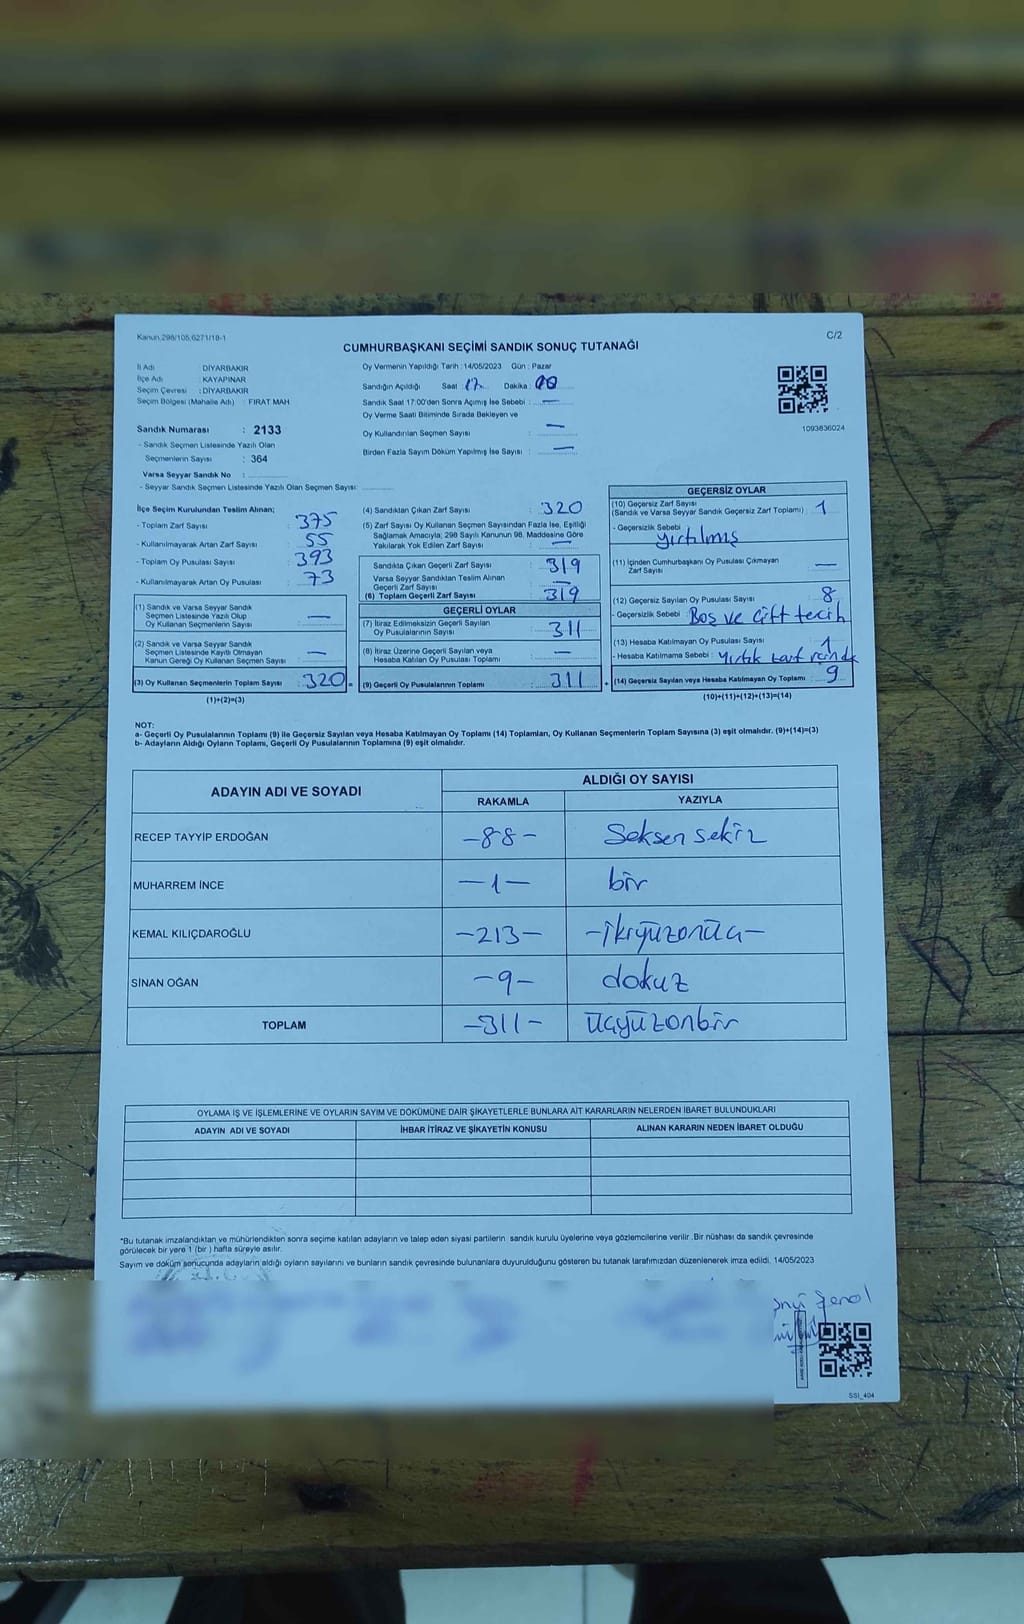 Kanun.298/105,6271/19-1
C/2
CUMHURBAŞKANI SEÇİMİ SANDIK SONUÇ TUTANAĞI
İl Adı : DİYARBAKIR
İlçe Adı : KAYAPINAR
Seçim Çevresi : DİYARBAKIR
Seçim Bölgesi (Mahalle Adı) : FIRAT MAH.
Sandık Numarası : 2133
- Sandık Seçmen Listesinde Yazılı Olan
Seçmenlerin Sayısı : 364
Varsa Seyyar Sandık No :
- Seyyar Sandık Seçmen Listesinde Yazılı Olan Seçmen Sayısı:
Oy Vermenin Yapıldığı Tarih : 14/05/2023 Gün : Pazar
Sandığın Açıldığı Saat 17 Dakika : 00
Sandık Saat 17:00'den Sonra Açımış İse Sebebi : —
Oy Verme Saati Bitiminde Sırada Bekleyen ve
Oy Kullandırılan Seçmen Sayısı : —
Birden Fazla Sayım Döküm Yapılmış İse Sayısı : —
1093836024
İlçe Seçim Kurulundan Teslim Alınan;
- Toplam Zarf Sayısı : 375
- Kullanılmayarak Artan Zarf Sayısı : 55
- Toplam Oy Pusulası Sayısı : 393
- Kullanılmayarak Artan Oy Pusulası : 73
(1) Sandık ve Varsa Seyyar Sandık
Seçmen Listesinde Yazılı Olup
Oy Kullanan Seçmenlerin Sayısı :
(2) Sandık ve Varsa Seyyar Sandık
Seçmen Listesinde Kayıtlı Olmayan
Kanun Gereği Oy Kullanan Seçmen Sayısı : —
(3) Oy Kullanan Seçmenlerin Toplam Sayısı : 320 =
(1)+(2)=(3)
(4) Sandıktan Çıkan Zarf Sayısı : 320
(5) Zarf Sayısı Oy Kullanan Seçmen Sayısından Fazla İse, Eşitliği
Sağlamak Amacıyla; 298 Sayılı Kanunun 98. Maddesine Göre
Yakılarak Yok Edilen Zarf Sayısı : —
Sandıkta Çıkan Geçerli Zarf Sayısı : 319
Varsa Seyyar Sandıktan Teslim Alınan
Geçerli Zarf Sayısı : —
(6) Toplam Geçerli Zarf Sayısı : 319
GEÇERLİ OYLAR
(7) İtiraz Edilmeksizin Geçerli Sayılan
Oy Pusulalarının Sayısı : 311
(8) İtiraz Üzerine Geçerli Sayılan veya
Hesaba Katılan Oy Pusulası Toplamı : —
(9) Geçerli Oy Pusulalarının Toplamı : 311 +
GEÇERSİZ OYLAR
(10) Geçersiz Zarf Sayısı
(Sandık ve Varsa Seyyar Sandık Geçersiz Zarf Toplamı) : 1
- Geçersizlik Sebebi : yırtılmış
(11) İçinden Cumhurbaşkanı Oy Pusulası Çıkmayan
Zarf Sayısı : —
(12) Geçersiz Sayılan Oy Pusulası Sayısı : 8
- Geçersizlik Sebebi : Boş ve çift tercih
(13) Hesaba Katılmayan Oy Pusulası Sayısı : 1
- Hesaba Katılmama Sebebi : Yırtık zarf
(14) Geçersiz Sayılan veya Hesaba Katılmayan Oy Toplamı : 9
(10)+(11)+(12)+(13)=(14)
NOT:
a- Geçerli Oy Pusulalarının Toplamı (9) ile Geçersiz Sayılan veya Hesaba Katılmayan Oy Toplamı (14) Toplamları, Oy Kullanan Seçmenlerin Toplam Sayısına (3) eşit olmalıdır. (9)+(14)=(3)
b- Adayların Aldığı Oyların Toplamı, Geçerli Oy Pusulalarının Toplamına (9) eşit olmalıdır.
ADAYIN ADI VE SOYADI
ALDIĞI OY SAYISI
RAKAMLA YAZIYLA
RECEP TAYYİP ERDOĞAN -88- Seksen sekiz
MUHARREM İNCE -1- bir
KEMAL KILIÇDAROĞLU -213- -ikiyüzonüç-
SİNAN OĞAN -9- dokuz
TOPLAM -311- üçyüzonbir
OYLAMA İŞ VE İŞLEMLERİNE VE OYLARIN SAYIM VE DÖKÜMÜNE DAİR ŞİKAYETLERLE BUNLARA AİT KARARLARIN NELERDEN İBARET BULUNDUKLARI
ADAYIN ADI VE SOYADI İHBAR İTİRAZ VE ŞİKAYETİN KONUSU ALINAN KARARIN NEDEN İBARET OLDUĞU
*Bu tutanak imzalandıktan ve mühürlendikten sonra seçime katılan adayların ve talep eden siyasi partilerin sandık kurulu üyelerine veya gözlemcilerine verilir. Bir nüshası da sandık çevresinde
görülecek bir yere 1 (bir ) hafta süreyle asılır.
Sayım ve döküm sonucunda adayların aldığı oyların sayılarını ve bunların sandık çevresinde bulunanlara duyurulduğunu gösteren bu tutanak tarafımızdan düzenlenerek imza edildi. 14/05/2023
Şenol
SSI_404